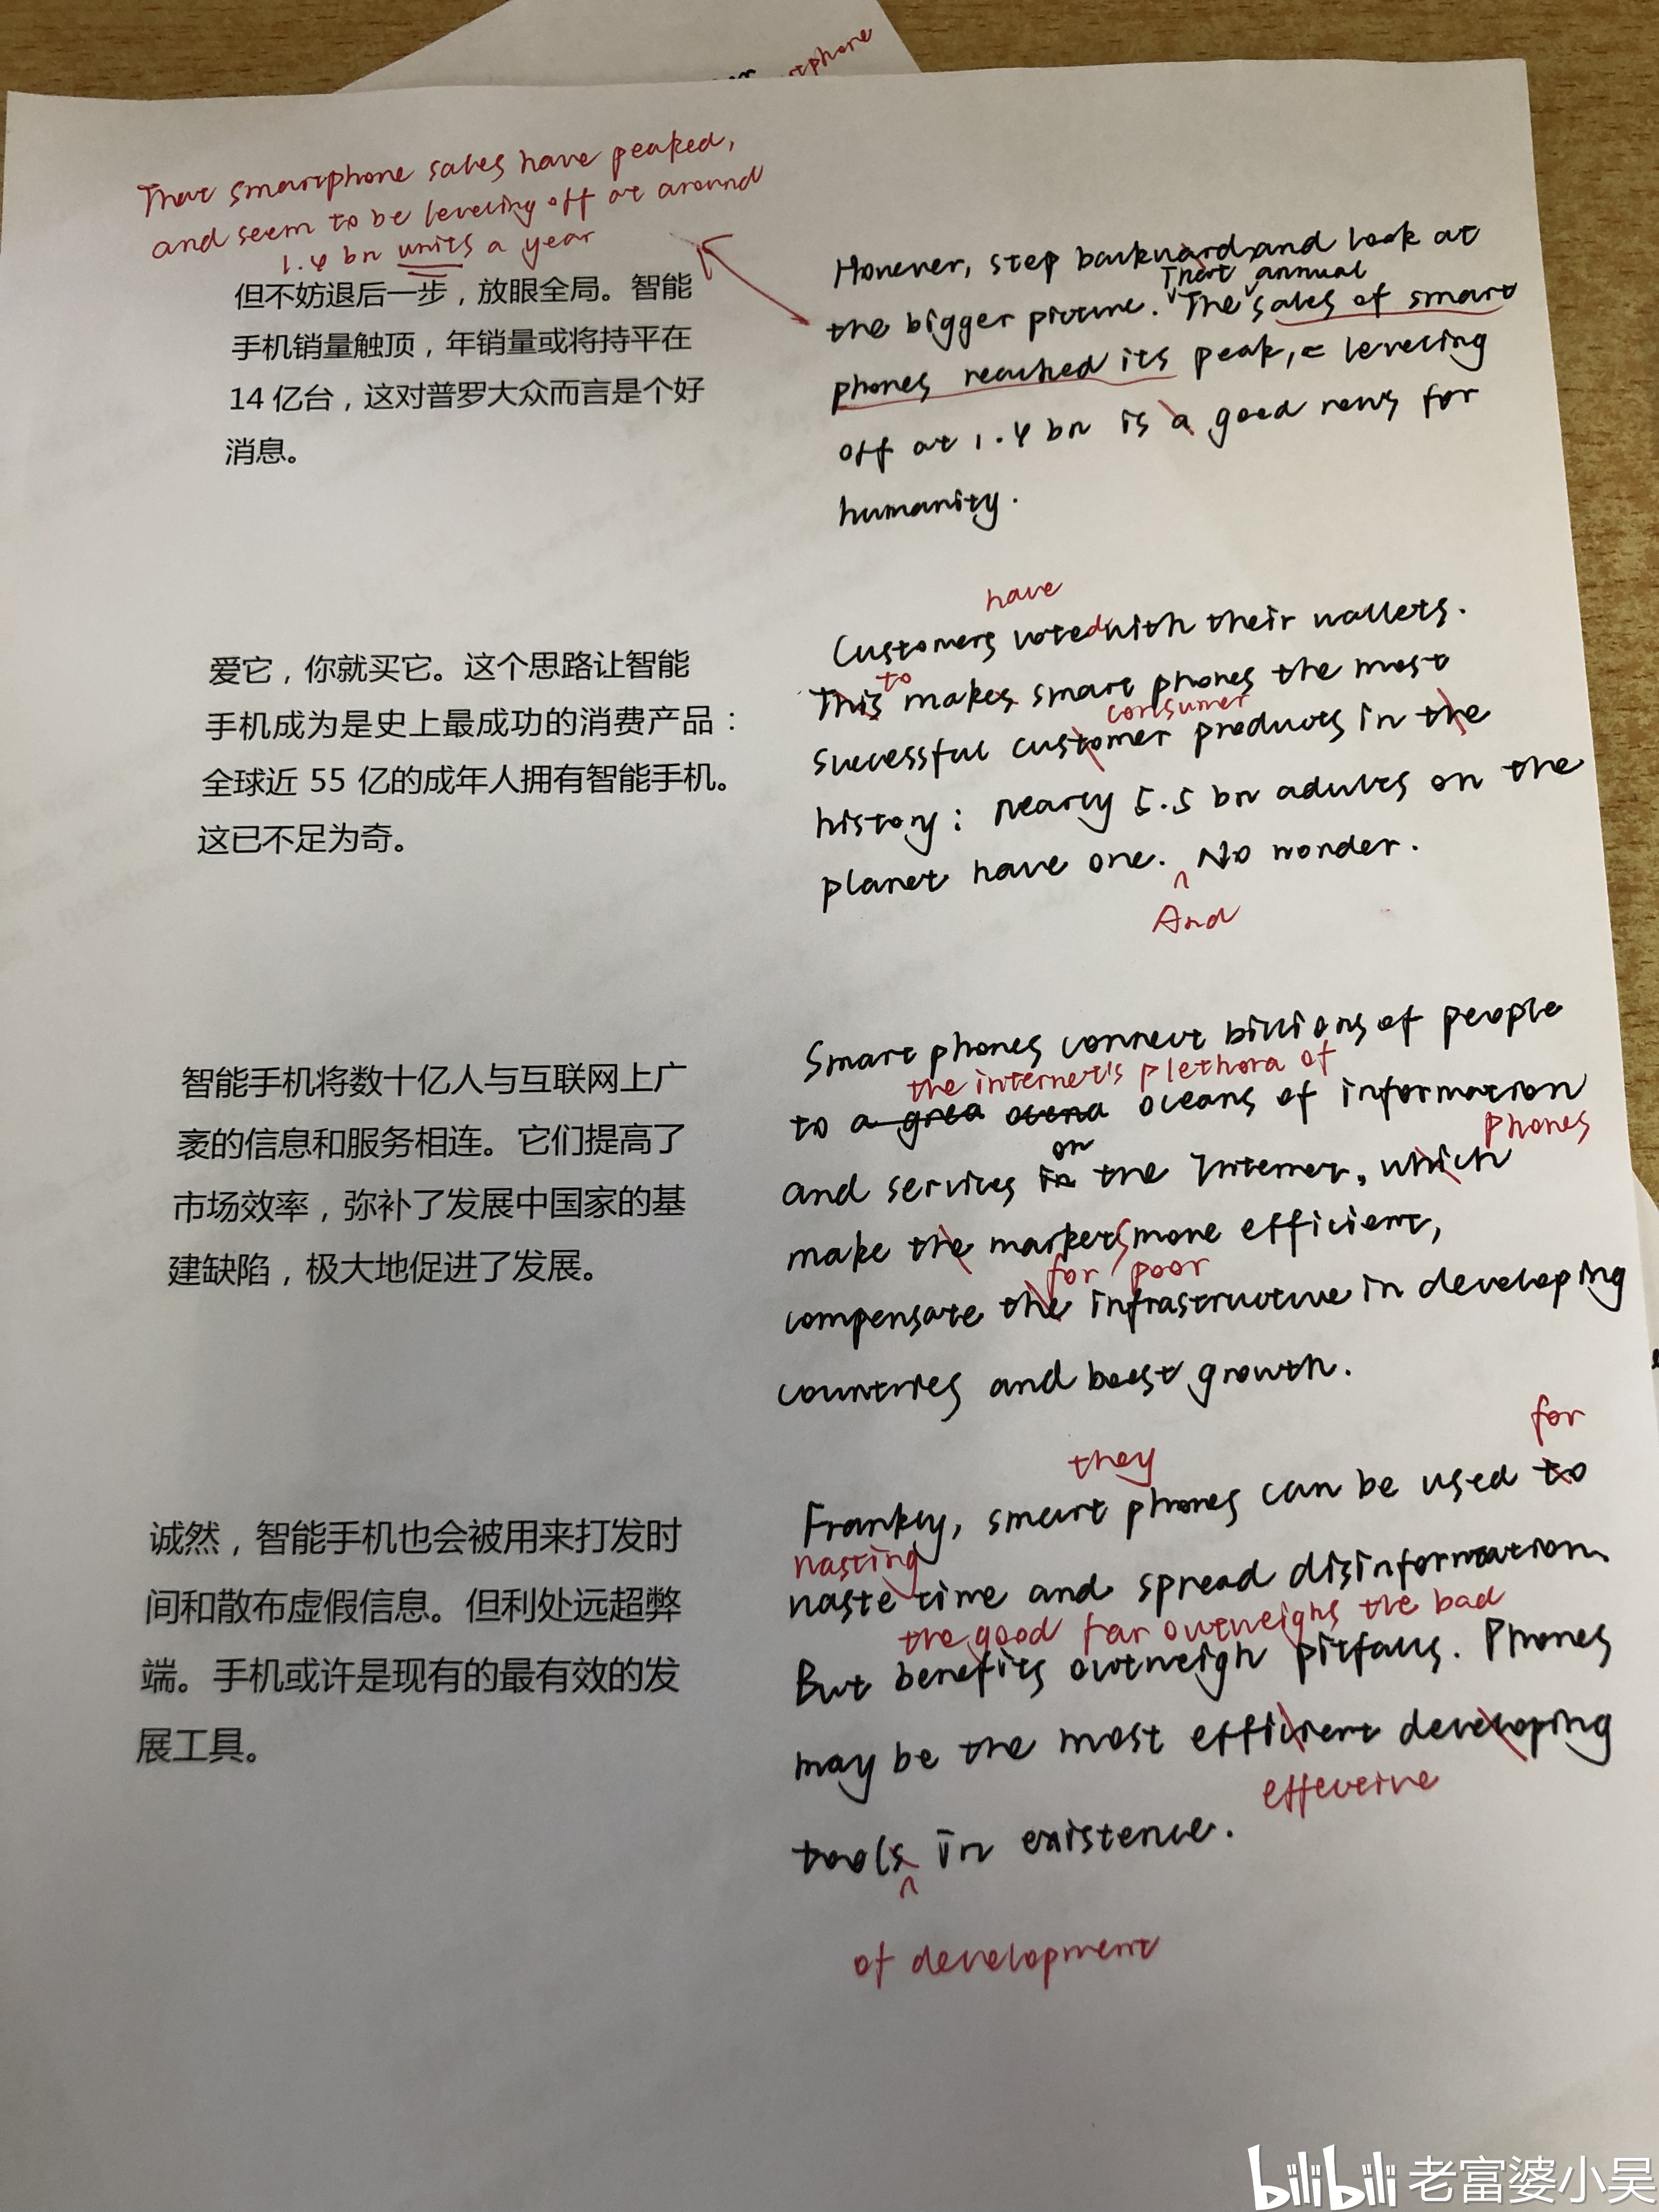 rtphone
That smartphone sales have peaked,
and seem to be leveling off at around
1.4 bn units a year
但不妨退后一步，放眼全局。智能
手机销量触顶，年销量或将持平在
14 亿台，这对普罗大众而言是个好
消息。
However, step backward and look at
That annual
the bigger picture. The sales of smart
phones reached its peak, leveling
off at 1.4 bn is a good news for
humanity.
爱它，你就买它。这个思路让智能
手机成为是史上最成功的消费产品：
全球近 55 亿的成年人拥有智能手机。
这已不足为奇。
have
Customers voted with their wallets.
to
This makes smart phones the most
consumer
successful customer products in the
history: nearly 5.5 bn adults on the
planet have one. No wonder.
And
智能手机将数十亿人与互联网上广
袤的信息和服务相连。它们提高了
市场效率，弥补了发展中国家的基
建缺陷，极大地促进了发展。
Smart phones connect billions of people
the internet's plethora of
to a grea ocena oceans of information
on phones
and services in the Internet, which
make the markets more efficient,
for poor
compensate the infrastructure in developing
countries and boost growth.
诚然，智能手机也会被用来打发时
间和散布虚假信息。但利处远超弊
端。手机或许是现有的最有效的发
展工具。
they for
Frankly, smart phones can be used to
wasting
waste time and spread disinformation.
the good far outweighs the bad
But benefits outweigh pitfalls. Phones
may be the most efficient developing
effective
tools in existence.
of development
bilibili 老富婆小吴